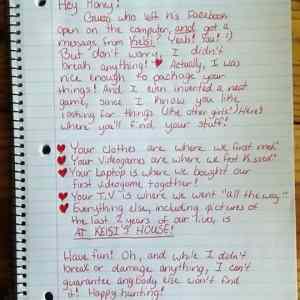 Hey Honey!
Guess who left his Facebook
open on the computer, and got a
message from Keisi? Yeah! You! :)
But don't worry, I didn't
break anything! Actually, I was
nice enough to package your
things! And I even invented a neat
game, since I know you like
looking for things (like other girls!) Here's
where you'll find your stuff!
Your clothes are where we first met.
Your videogames are where we first kissed.
Your laptop is where we bought our
first videogame together!
Your T.V is where we went "all the way."
Everything else, including pictures of
the last 2 years of our lives, is
AT KEISI'S HOUSE!
Have fun! Oh, and while I didn't
break or damage anything, I can't
guarantee anybody else won't find
it! Happy hunting!